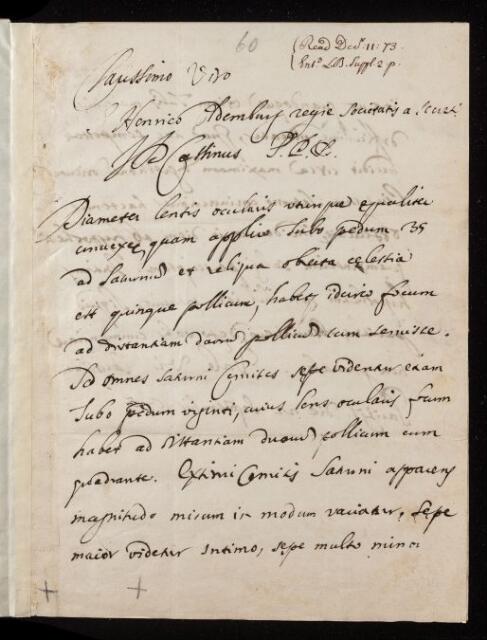 60
Read Decr. 11: 73.
Entd. LB. Suppl. 2 p.
Clarissimo Viro
Henrico Oldemburg regie Societatis a Secret.
Cassinus
Diameter lentis ocularis utrinque equaliter
convexe, quam applico Tubo pedum 35
ad Saturnum et reliqua obiecta celestia
est quinque pollicum, habet idcirco focum
ad distantiam duorum pollicum cum semisse.
Sed omnes Saturni Comites sepe videntur etiam
Tubo pedum viginti, cuius lens ocularis focum
habet ad distantiam duorum pollicum cum
quadrante. Extimi Comitis Saturni apparens
magnitudo mirum in modum variatur, sepe
maior videtur Intimo, sepe multo minor